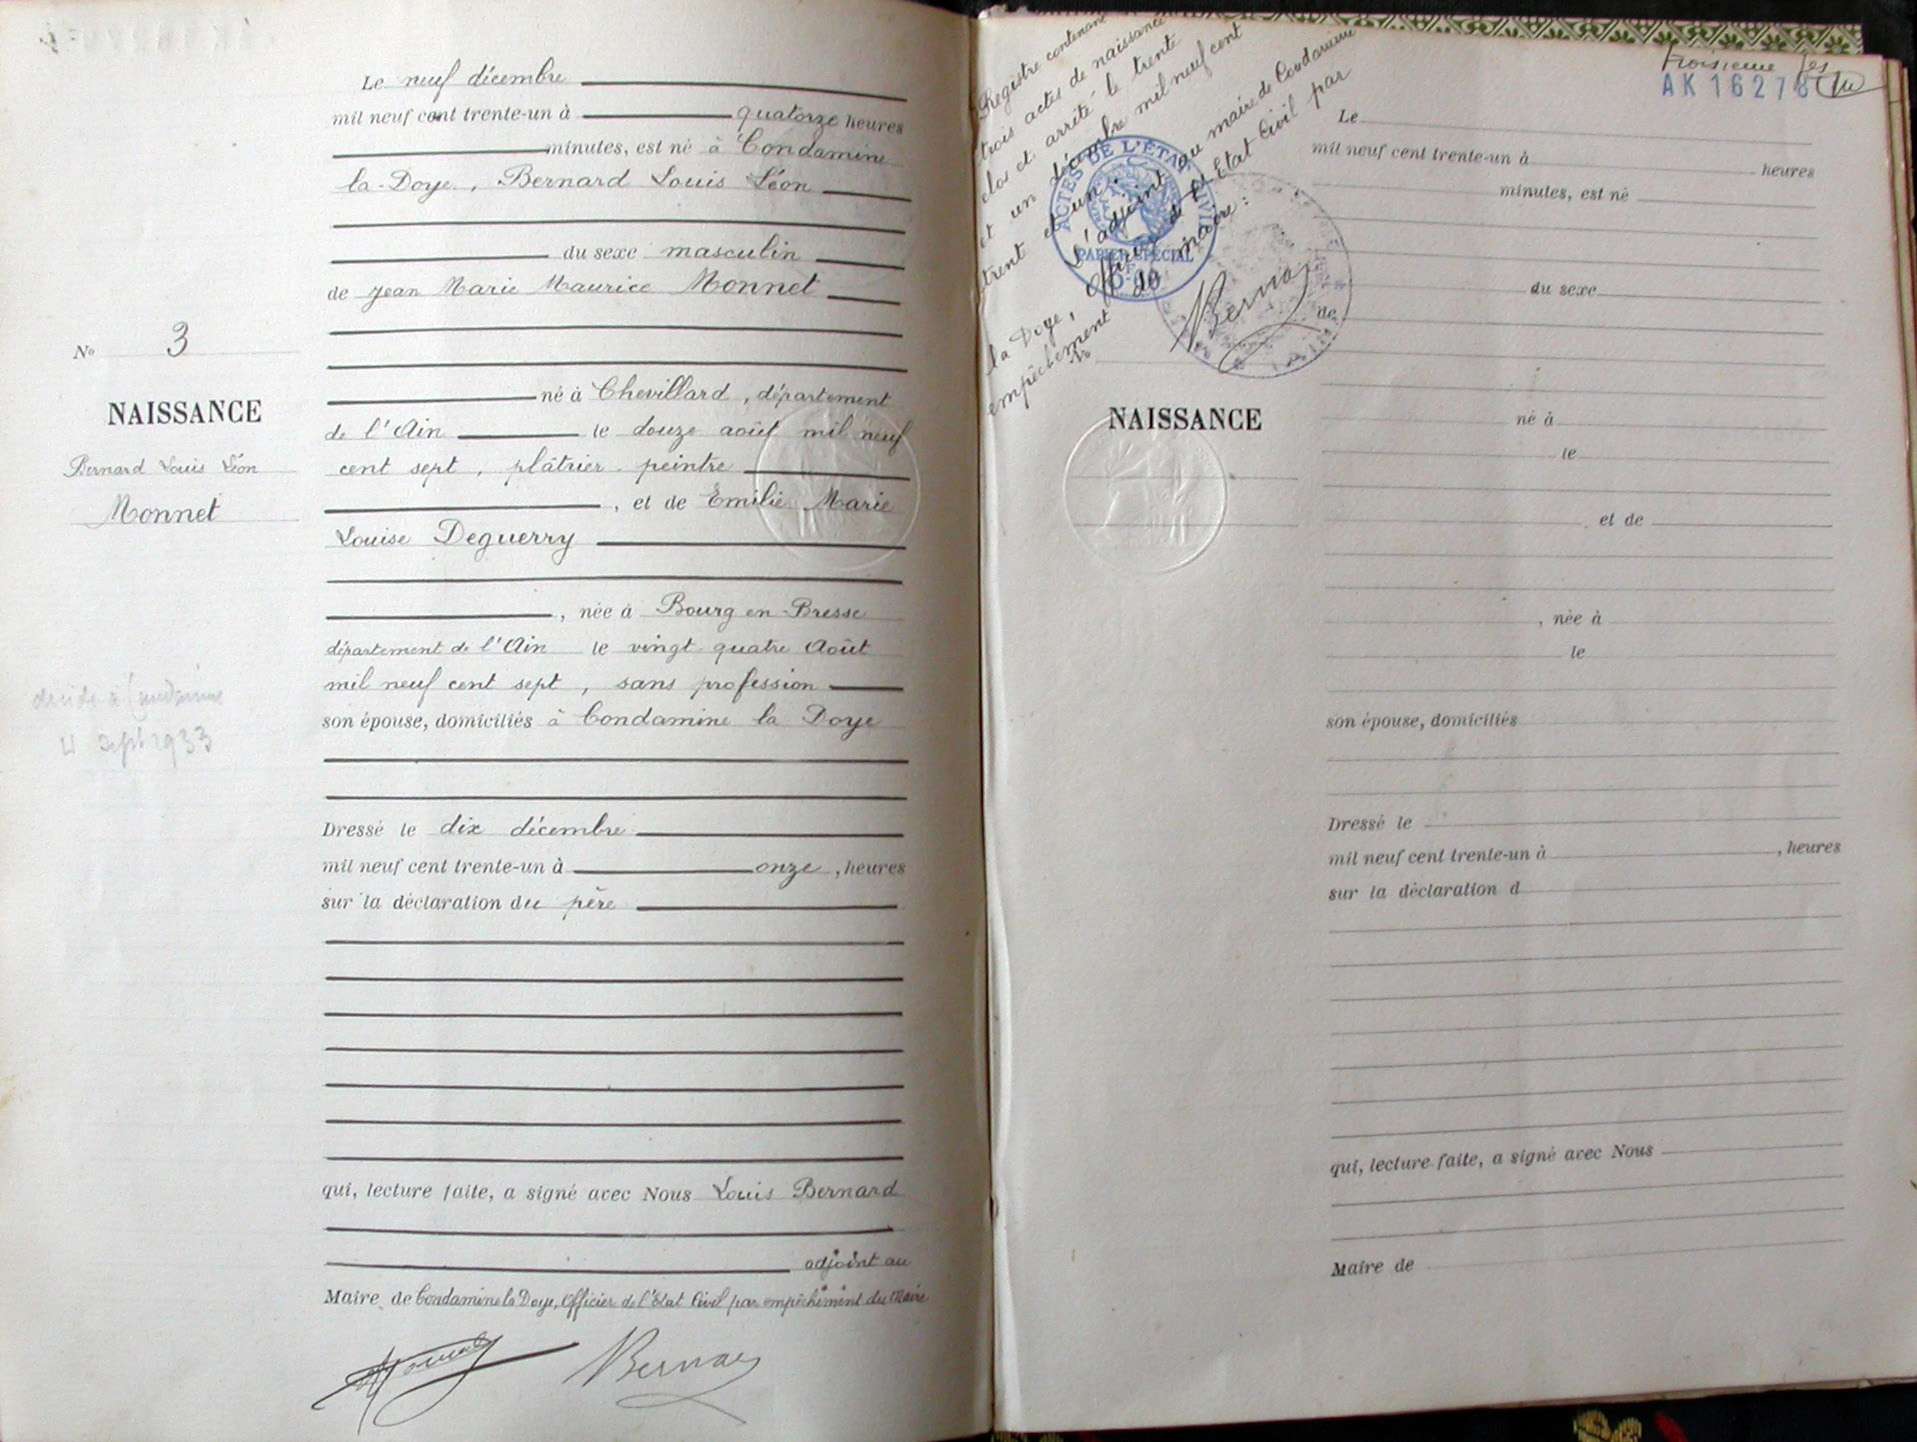 Le neuf décembre
mil neuf cent trente-un à quatorze heures
minutes, est né à Condamine
la-Doye, Bernard Louis Léon
du sexe masculin
de Jean Marie Maurice Monnet
né à Chevillard, département
de l'Ain le douze août mil neuf
cent sept, plâtrier-peintre
, et de Emilie Marie
Louise Deguerry
, née à Bourg en-Bresse
département de l'Ain le vingt quatre Août
mil neuf cent sept, sans profession
son épouse, domiciliés à Condamine la Doye
Dressé le dix décembre
mil neuf cent trente-un à onze, heures
sur la déclaration du père
qui, lecture faite, a signé avec Nous Louis Bernard
adjoint au
Maire de Condamine la Doye, Officier de l'Etat Civil par empêchement du Maire
Bernard
No 3
NAISSANCE
Bernard Louis Léon
Monnet
décédé à Condamine
4 Sept 1933
Registre contenant
trois actes de naissance
clos et arrêté le trente
et un décembre mil neuf cent
trent et un.
L'adjoint au maire de Condamine
la Doye, Officier de l'Etat Civil par
empêchement du maire:
Bernard
ACTES DE L'ÉTAT CIVIL
PAPIER SPÉCIAL
troisième
AK 16278
No
NAISSANCE
Le
mil neuf cent trente-un à heures
minutes, est né
du sexe
de
né à
le
et de
, née à
le
son épouse, domiciliés
Dressé le
mil neuf cent trente-un à , heures
sur la déclaration d
qui, lecture faite, a signé avec Nous
Maire de